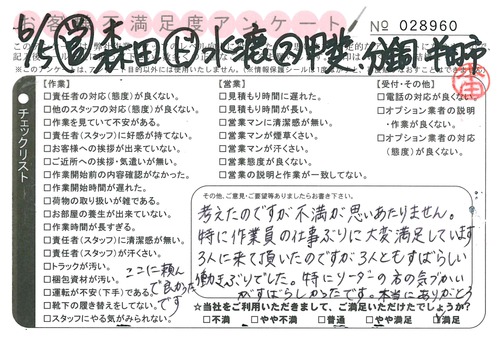 お客さま不満足度アンケート
№ 028960
6/5 森田 水瀧 甲斐 分銅 半田市
チェックリスト
【作業】
□責任者の対応(態度)が良くない。
□他のスタッフの対応(態度)が良くない。
□作業を見ていて不安がある。
□責任者(スタッフ)に好感が持てない。
□お客様への挨拶が出来ていない。
□ご近所への挨拶・気遣いが無い。
□作業開始前の内容確認がなかった。
□作業開始時間が遅れた。
□荷物の取り扱いが雑である。
□お部屋の養生が出来ていない。
□作業時間が長すぎる。
□責任者(スタッフ)に清潔感が無い。
□責任者(スタッフ)が汗くさい。
□トラックが汚い。
□梱包資材が汚い。
□運転が不安(下手)である。
□靴下の履き替えをしてない。
□スタッフにやる気がみられない。
ここに頼んで良かったです
【営業】
□見積もり時間に遅れた。
□見積もり時間が長い。
□営業マンに清潔感が無い。
□営業マンが煙草くさい。
□営業マンが汗くさい。
□営業態度が良くない。
□営業の説明と作業が一致してない。
【受付・その他】
□電話の対応が良くない
□オプション業者の説明
・作業が良くない。
□オプション業者の対応
(態度)が良くない。
その他、ご意見・ご要望等ありましたらお書き下さい。
考えたのですが不満が思いあたりません。
特に作業員の仕事ぶりに大変満足しています
3人に来て頂いたのですが3人ともすばらしい
働きぶりでした。特にリーダーの方の気づかい
がすばらしかったです。本当にありがとう
★当社をご利用いただきまして、ご満足いただけたでしょうか?
□不満 □やや不満 □普通 □やや満足 □満足